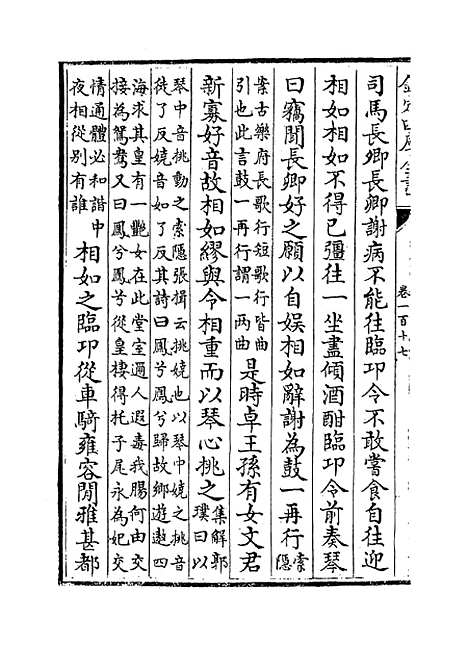 欽定四庫全書
卷一百十七
司馬長卿長卿謝病不能往臨卭令不敢嘗食自往迎
相如相如不得已彊往一坐盡傾酒酣臨卭令前奏琴
曰竊聞長卿好之願以自娱相如辭謝為鼓一再行
索
隱
案古樂府長歌行短歌行皆曲
引也此言鼓一再行謂一兩曲
是時卓王孫有女文君
新寡好音故相如繆與令相重而以琴心挑之
集解郭
璞曰以
琴中音挑動之索隱張揖云挑嬈也以琴中嬈之挑音
徒了反嬈音如了反其詩曰鳳兮鳳兮歸故鄉遊遨四
海求其皇有一艷女在此堂室邇人遐毒我腸何由交
接為鴛鴦又曰鳳兮鳳兮從皇棲得托子尾永為妃交
情通體必和諧中
夜相從别有誰
相如之臨卭從車騎雍容閒雅甚都